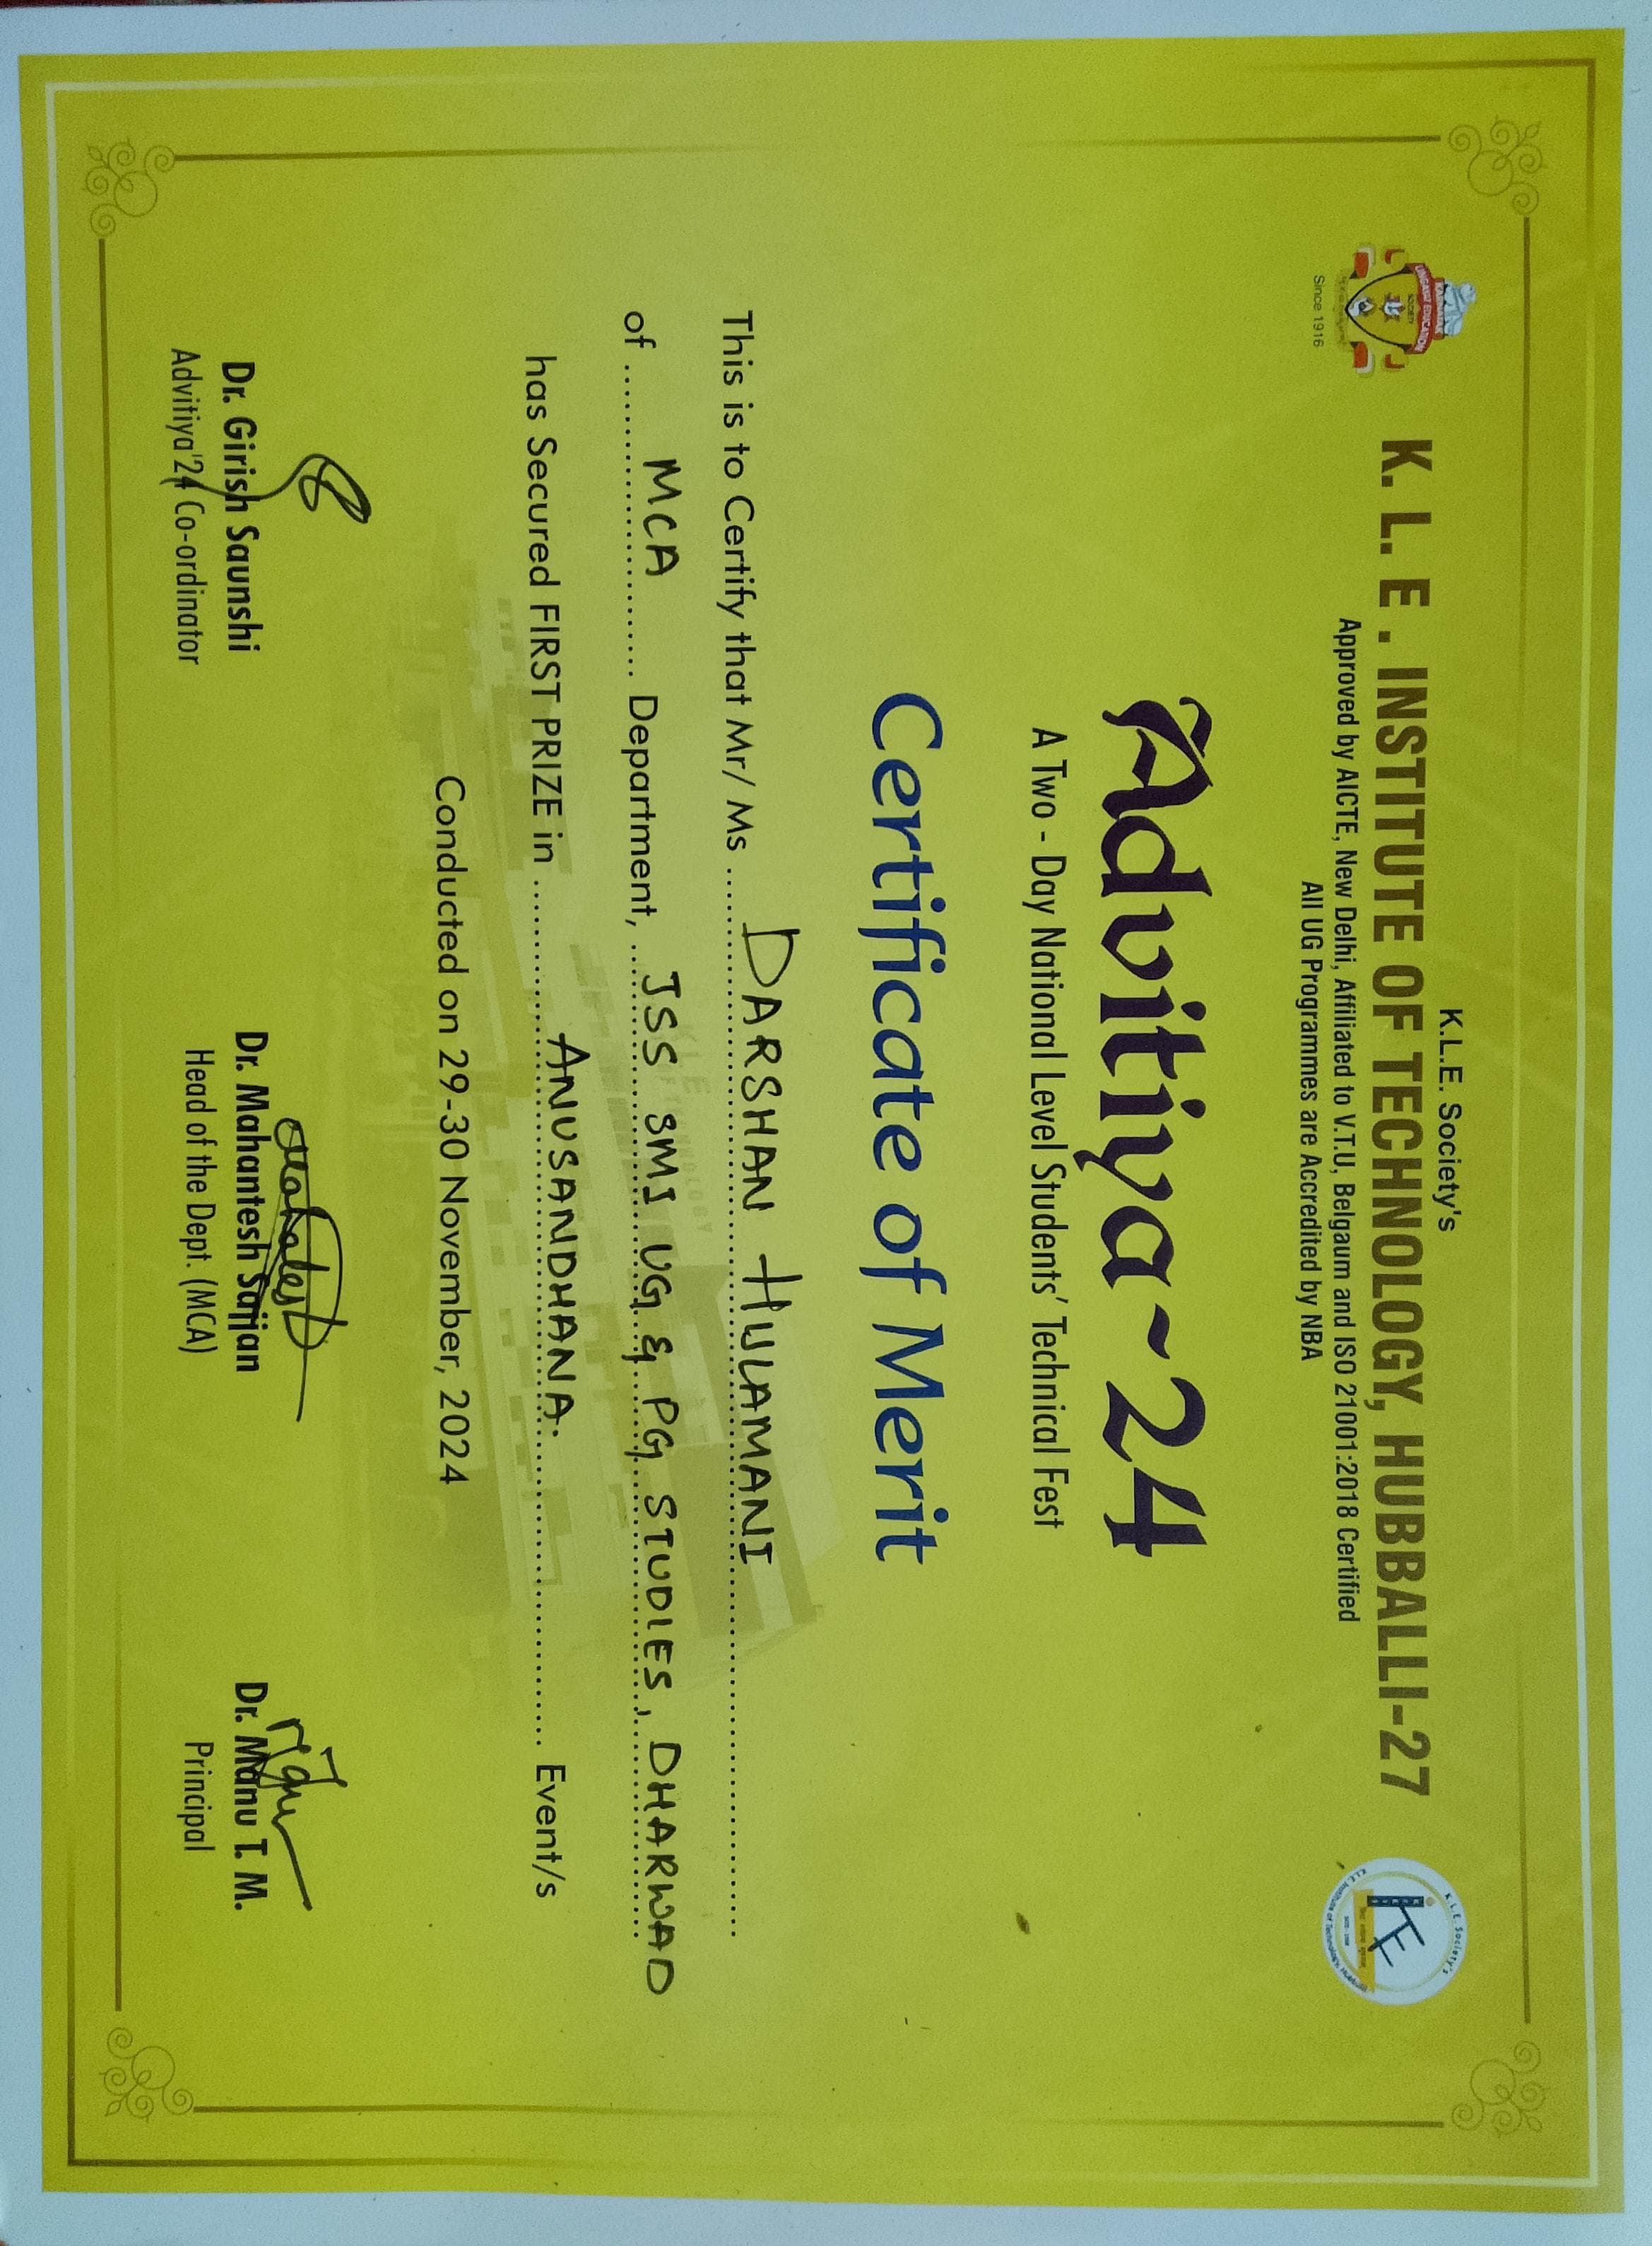 KARNATAK
LINGAYAT EDUCATION
SOCIETY
Since 1916
K.L.E. Society's
K. L. E . INSTITUTE OF TECHNOLOGY, HUBBALLI-27
Approved by AICTE, New Delhi, Affiliated to V.T.U, Belgaum and ISO 21001:2018 Certified
All UG Programmes are Accredited by NBA
K.L.E. Society's
KLE
K.L.E. Institute of Technology, Hubballi
Advitiya-24
A Two - Day National Level Students' Technical Fest
Certificate of Merit
This is to Certify that Mr/ Ms DARSHAN HULAMANI
of MCA Department, JSS SMI UG & PG STUDIES, DHARWAD
has Secured FIRST PRIZE in ANUSANDHANA. Event/s
Conducted on 29-30 November, 2024
Dr. Girish Saunshi
Advitiya'24 Co-ordinator
Dr. Mahantesh Sajjan
Head of the Dept. (MCA)
Dr. Manu T. M.
Principal